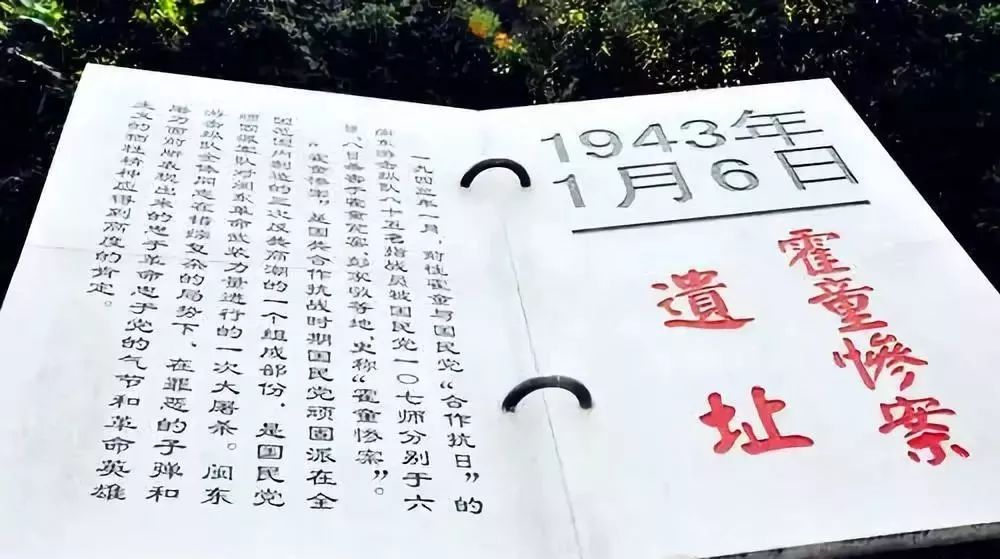 1943年
1月6日
霍童慘案
遺址
一九四三年一月，前往霍童与国民党“合作抗日”的
闽东游击队八十五名指战员被国民党一〇七师分别于六
日、八日害于霍童瓦窑、等地，史称“霍童惨案”。
“霍童惨案”是国共合作抗战时期国民党顽固派在全
国范围内制造的三次反共高潮的一个组成部份，是国民党
顽固派军队对闽东革命武装力量进行的一次大屠杀。闽东
游击队全体同志在错综复杂的局势下，在罪恶的子弹和
屠刀面前所表现出来的忠于革命忠于党的气节和革命英雄
主义的牺牲精神应得到高度的肯定。